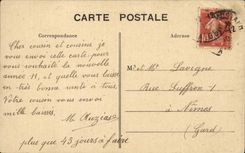 CARTE POSTALE
Correspondance
Adresse
Cher cousin et cousine je
vous envoie cette carte pour
vous souhaiter la nouvelle
année 11, et quelle vous laisse
en très bonne santé à tous.
Votre cousin vous envoi
melle baisers.
M. Auzias
plus que 43 jours à faire
Mr et Me Lavigne
Rue Suffron 1
à Nîmes
(Gard)